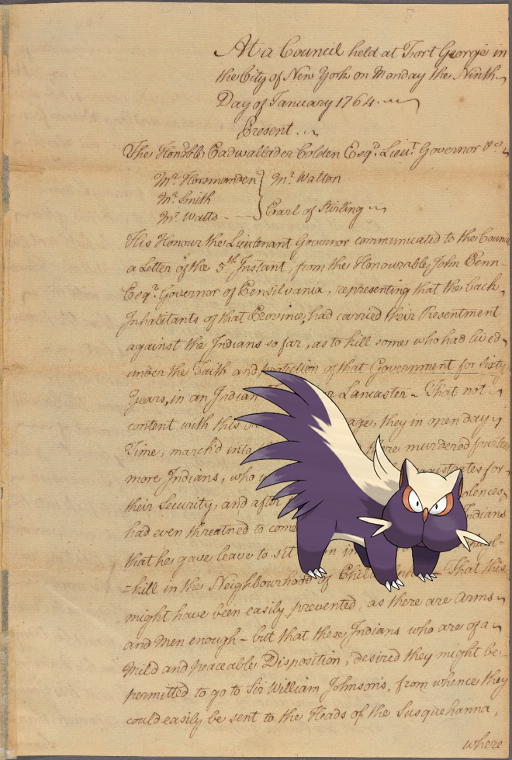 At a Council held at Fort George in
the City of New York on Monday the Ninth
Day of January 1764.
Present.
The Honoble. Cadwallader Colden Esqr. Lieut. Governor &c.
Mr. Horsmanden Mr. Walton
Mr. Smith
Mr. Watts Earl of Stirling
His Honour the Lieutenant Governor communicated to the Council
a Letter of the 5th Instant, from the Honourable John Penn
Esqr. Governor of Pensilvania, representing that the back
Inhabitants of that Province, had carried their Resentment
against the Indians so far, as to kill some who had lived
under the Faith and Protection of that Government for Sixty
Years, in an Indian Lancaster - That not
content with this they in open day
Time, march'd into murdered fourteen
more Indians, who for
their Security, and after
Indians
had even threatned to come
that he gave leave to sit in
-kill in the Neighbourhood of That this
might have been easily prevented, as there are Arms
and Men enough - but that these Indians who are of a
Mild and peaceable Disposition, desired they might be
permitted to go to Sir William Johnson's, from whence they
could easily be sent to the Heads of the Susquehanna,
where